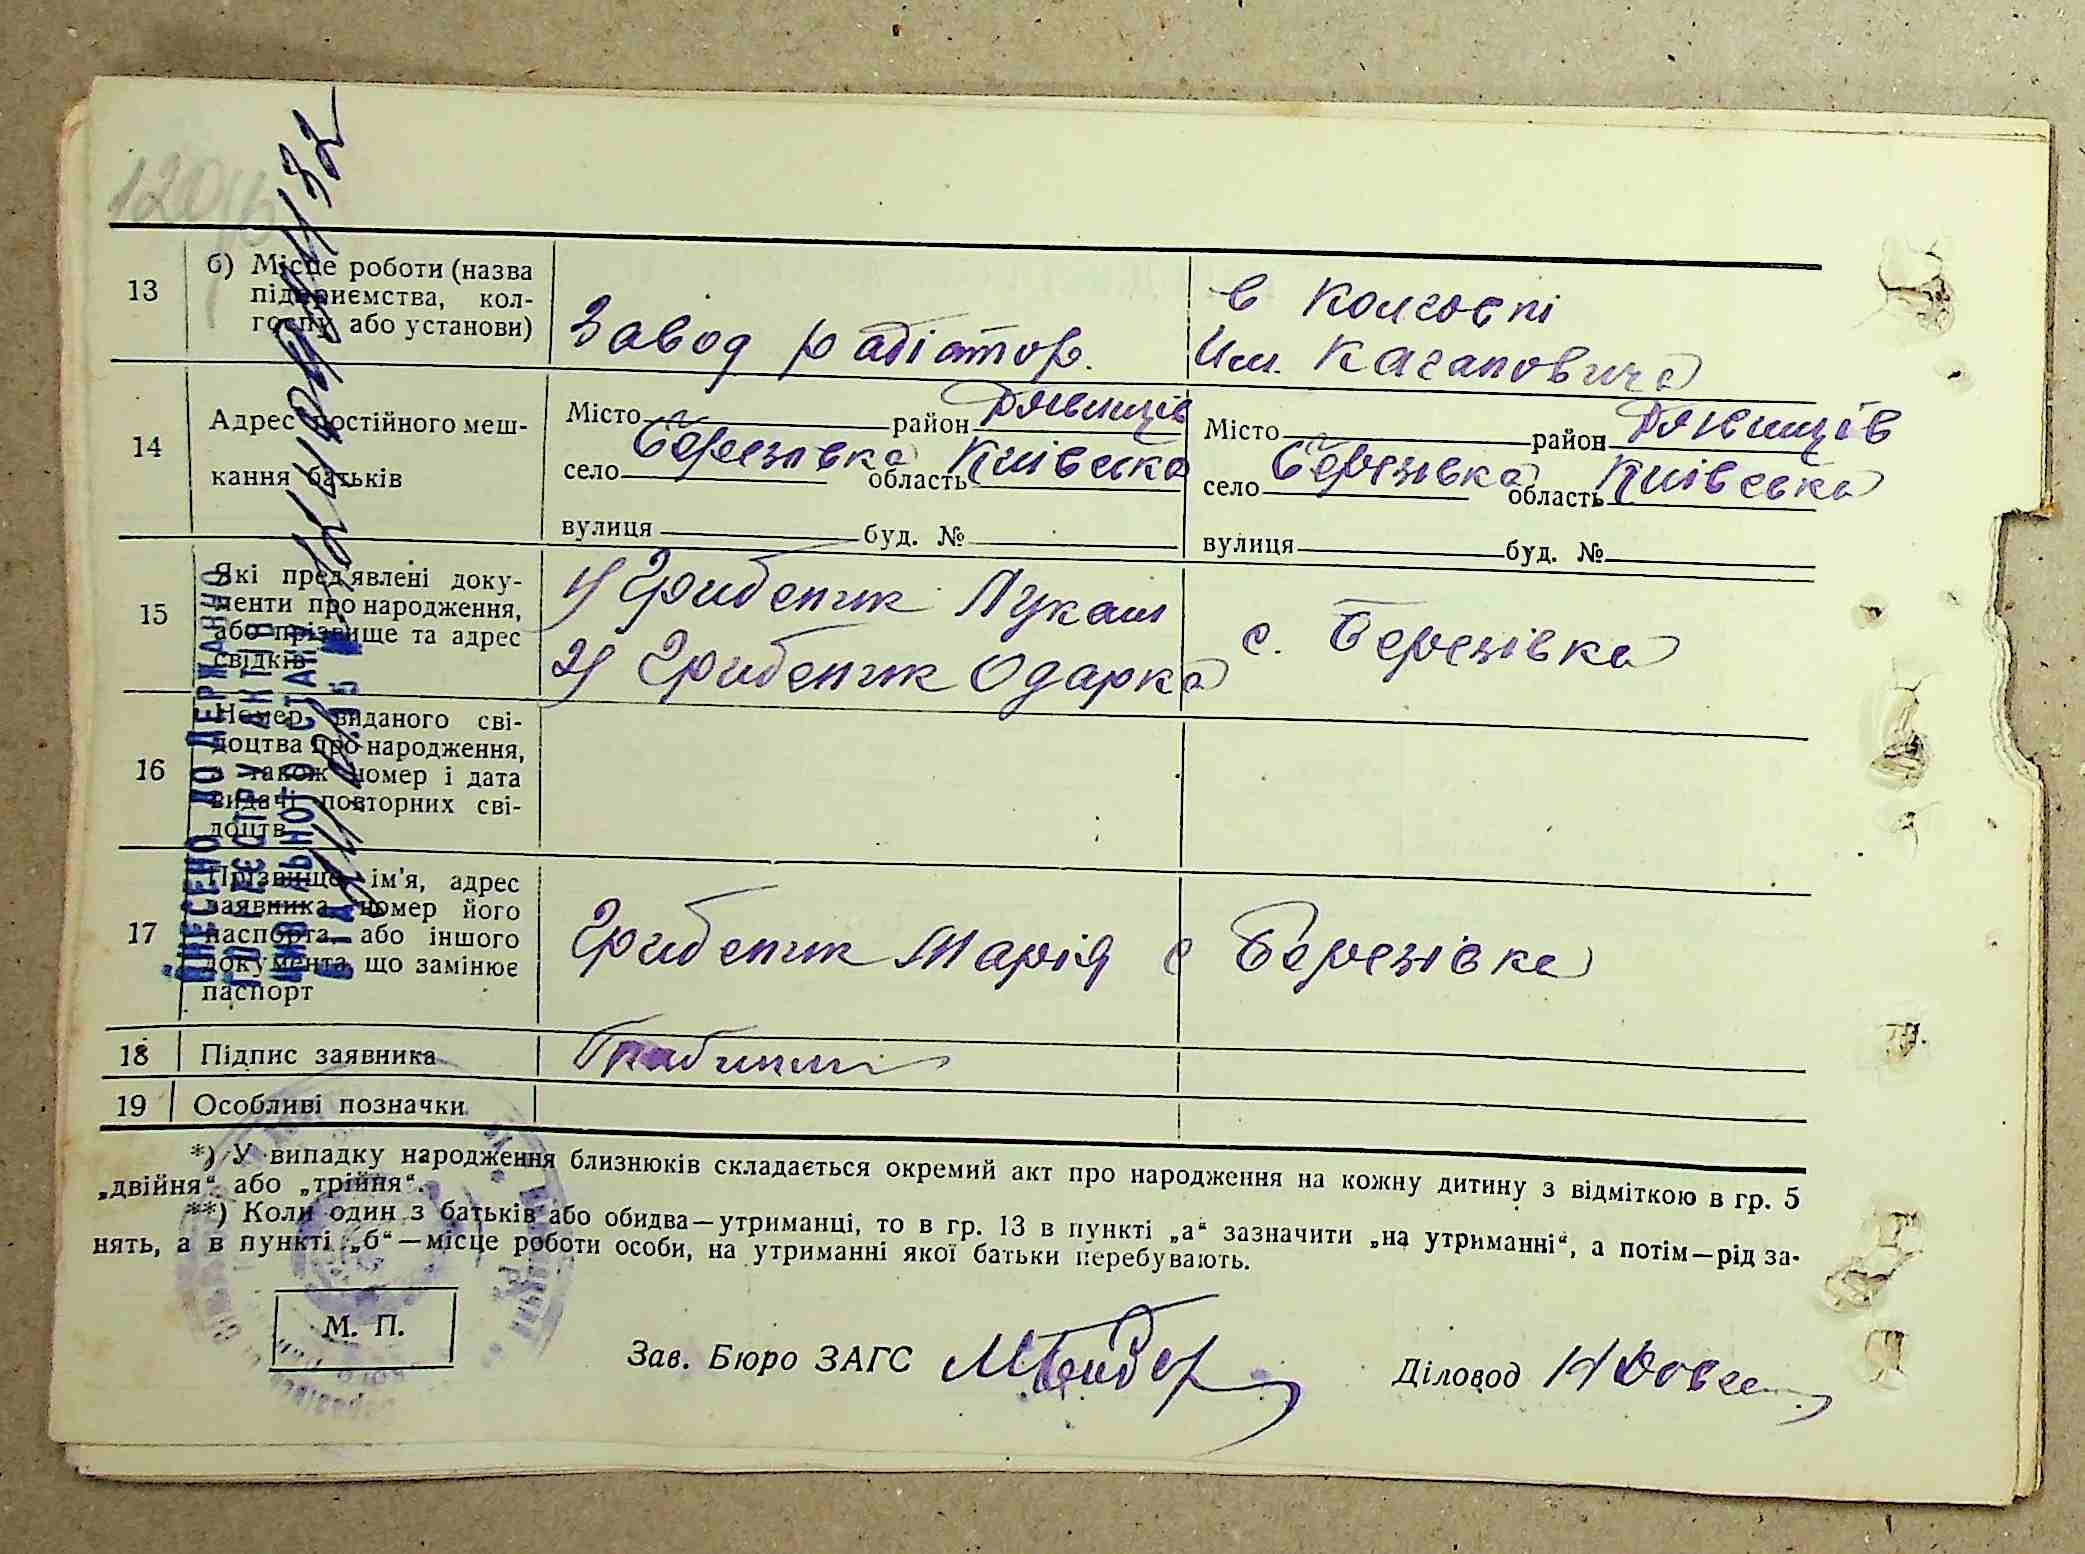 120
13
б) Місце роботи (назва
підприємства, кол-
госпу або установи)
Завод радіатор.
в колгоспі
Им. Кагановича
14
Адрес постійного меш-
кання батьків
Місто район
село Березівка область Київска
вулиця буд. №
Місто район
село Березівка область Київска
вулиця буд. №
15
Які пред'явлені доку-
менти про народження,
або прізвище та адрес
свідків
1) Грибеник Лукаш
2) Грибеник Одарка
с. Березівка
16
Номер виданого сві-
доцтва про народження,
а також номер і дата
видачі повторних сві-
доцтв
17
Прізвище, ім'я, адрес
заявника, номер його
паспорта, або іншого
документа, що замінює
паспорт
Грибеник Марія с Березівка
18
Підпис заявника
19
Особливі позначки
*) У випадку народження близнюків складається окремий акт про народження на кожну дитину з відміткою в гр. 5
„двійня“ або „трійня“.
**) Коли один з батьків або обидва—утриманці, то в гр. 13 в пункті „а“ зазначити „на утриманні“, а потім—рід за-
нять, а в пункті „б“—місце роботи особи, на утриманні якої батьки перебувають.
М. П.
Зав. Бюро ЗАГС
Діловод
ВНЕСЕНО ДО ДЕРЖАВНОГО
РЕЄСТРУ АКТІВ
ЦИВІЛЬНОГО СТАНУ